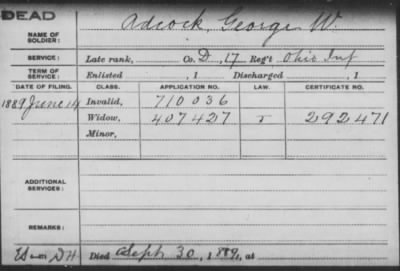 DEAD
NAME OF SOLDIER: Adcock, George W.
SERVICE: Late rank, Co. D, 17 Reg't Ohio Inf
TERM OF SERVICE: Enlisted , 1 Discharged , 1
DATE OF FILING. CLASS. APPLICATION NO. LAW. CERTIFICATE NO.
1889 June 14 Invalid, 710036
Widow, 407427 292471
Minor,
ADDITIONAL SERVICES:
REMARKS:
Died Sept 30, 1889, at